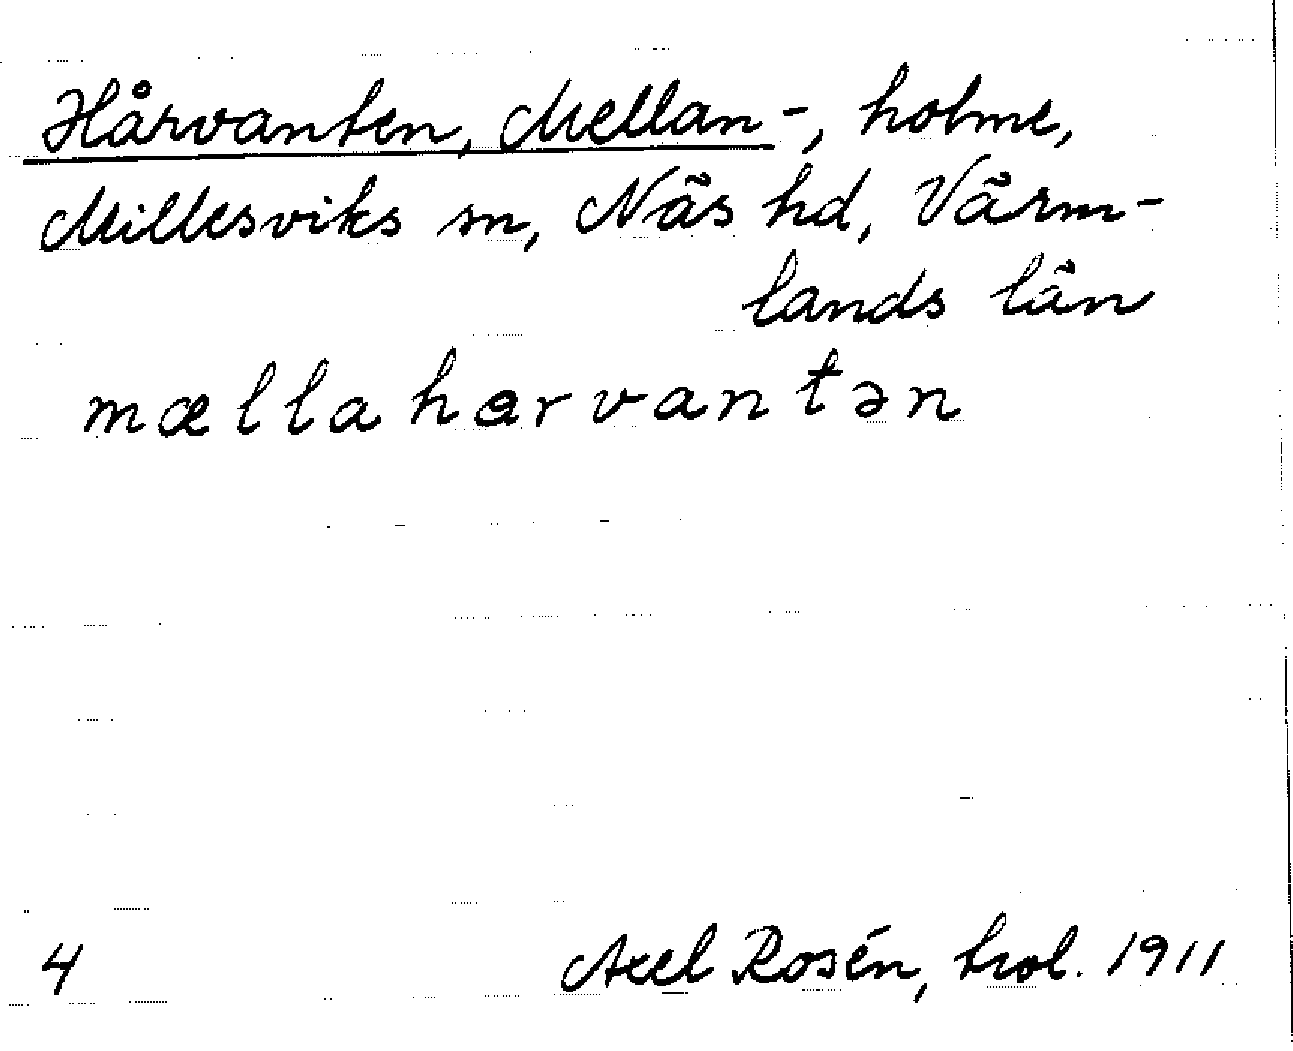 Hårvanten, Mellan-, holme,
Millesviks sn, Näs hd, Värm-
lands län
mællaharvantən
4 Axel Rosén, trol. 1911